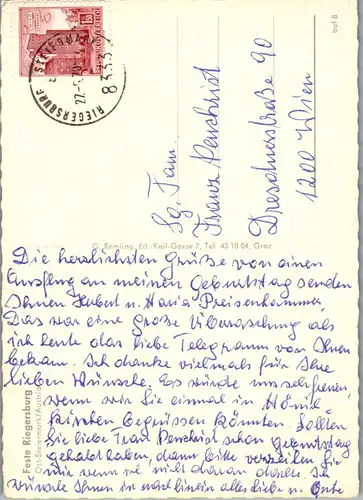 RIEGERSBURG STEIERMARK
27.-9.70
8333
bof 8
Sg. Fam.
Franz Penchrist
Dresdnerstraße 90
1200 Wien
G. Remling, Ed.-Keil-Gasse 7, Tel. 43 10 04, Graz
Feste Riegersburg
Ost-Steiermark/Austria
Die herzlichsten Grüße von einen
Ausflug an meinen Geburtstag senden
Ihnen Hubert u. Maria Preisenhammer
Das war eine Große Überraschung als
ich heute das liebe Telegramm von Ihnen
bekam. Ich danke vielmals für Ihre
lieben Wünsche. Es würde uns sehr freuen,
wenn wir Sie einmal in
begrüssen könnten. Sollten
Sie liebe Frau Penchrist schon Geburtstag
gehabt haben, dann bitte verzeihen Sie
mir wenn wir nicht daran dachte. Ich
wünsche Ihnen in nachhinein alles liebe u. Gute